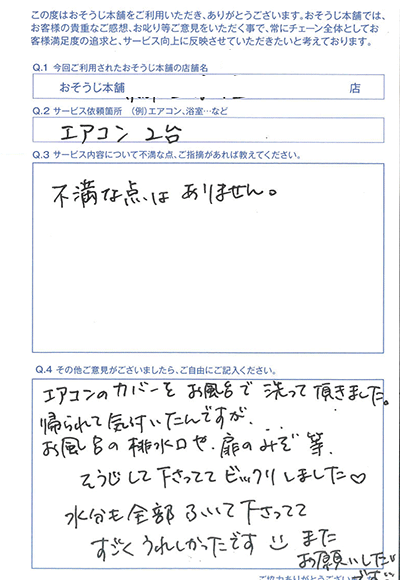 この度はおそうじ本舗をご利用いただき、ありがとうございます。おそうじ本舗では、
お客様の貴重なご感想、お叱り等ご意見をいただく事で、常にチェーン全体としてお
客様満足度の追求と、サービス向上に反映させていただきたいと考えております。
Q.1 今回ご利用されたおそうじ本舗の店舗名
おそうじ本舗 店
Q.2 サービス依頼箇所 (例)エアコン、浴室…など
エアコン 2台
Q.3 サービス内容について不満な点、ご指摘があれば教えてください。
不満な点は ありません。
Q.4 その他ご意見がございましたら、ご自由にご記入ください。
エアコンのカバーを お風呂で 洗って 頂きました。
帰られて 気付いたんですが...
お風呂の 排水口や、扉のみぞ 等、
そうじして 下さってて ビックリしました♡
水分も全部 ふいて 下さってて
すごく うれしかったです☺ また
お願いしたい
です
ご協力ありがとうござい